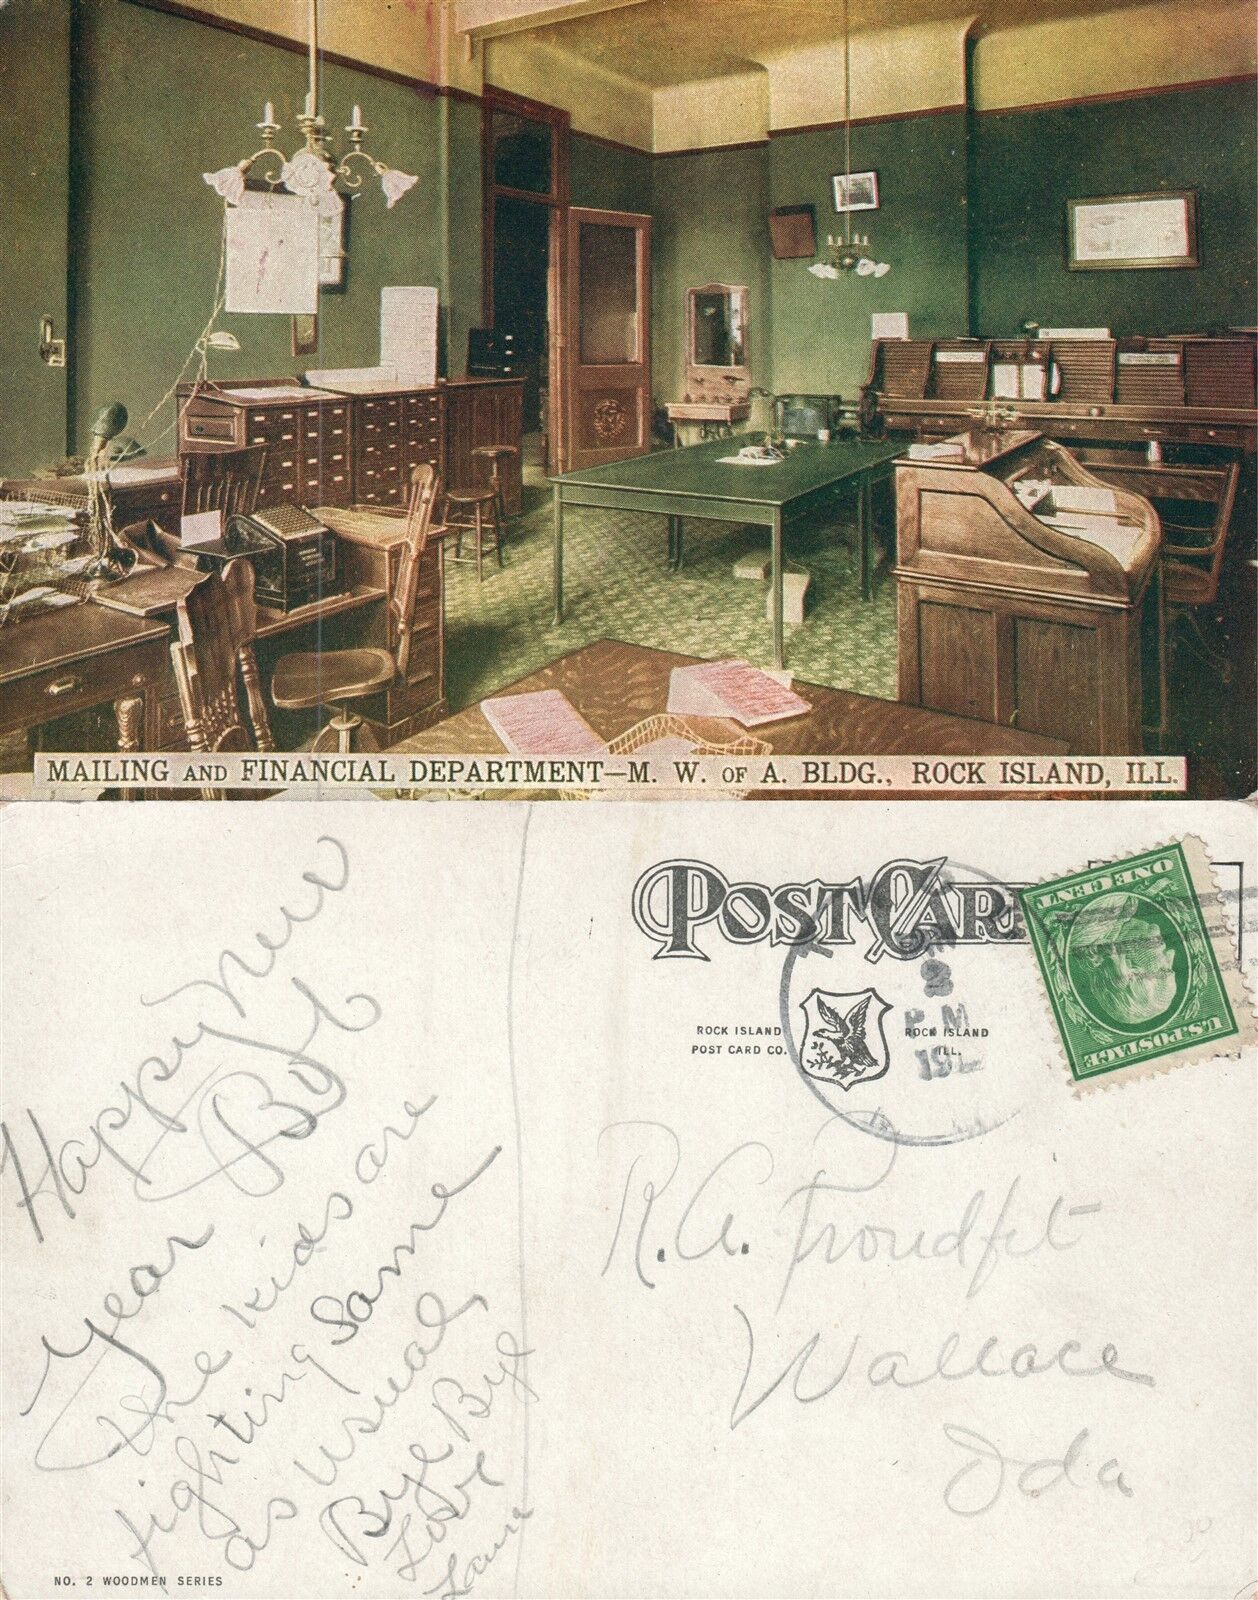 MAILING AND FINANCIAL DEPARTMENT—M. W. OF A. BLDG., ROCK ISLAND, ILL.
Happy New
Year Bob
The kids are
fighting Same
as usual,
Bye Bye
Love
Laura
NO. 2 WOODMEN SERIES
POST CARD
ROCK ISLAND
POST CARD CO.
ROCK ISLAND
ILL.
2
P.M
ONE CENT
U.S. POSTAGE
R. A. Proudfit
Wallace
Ida